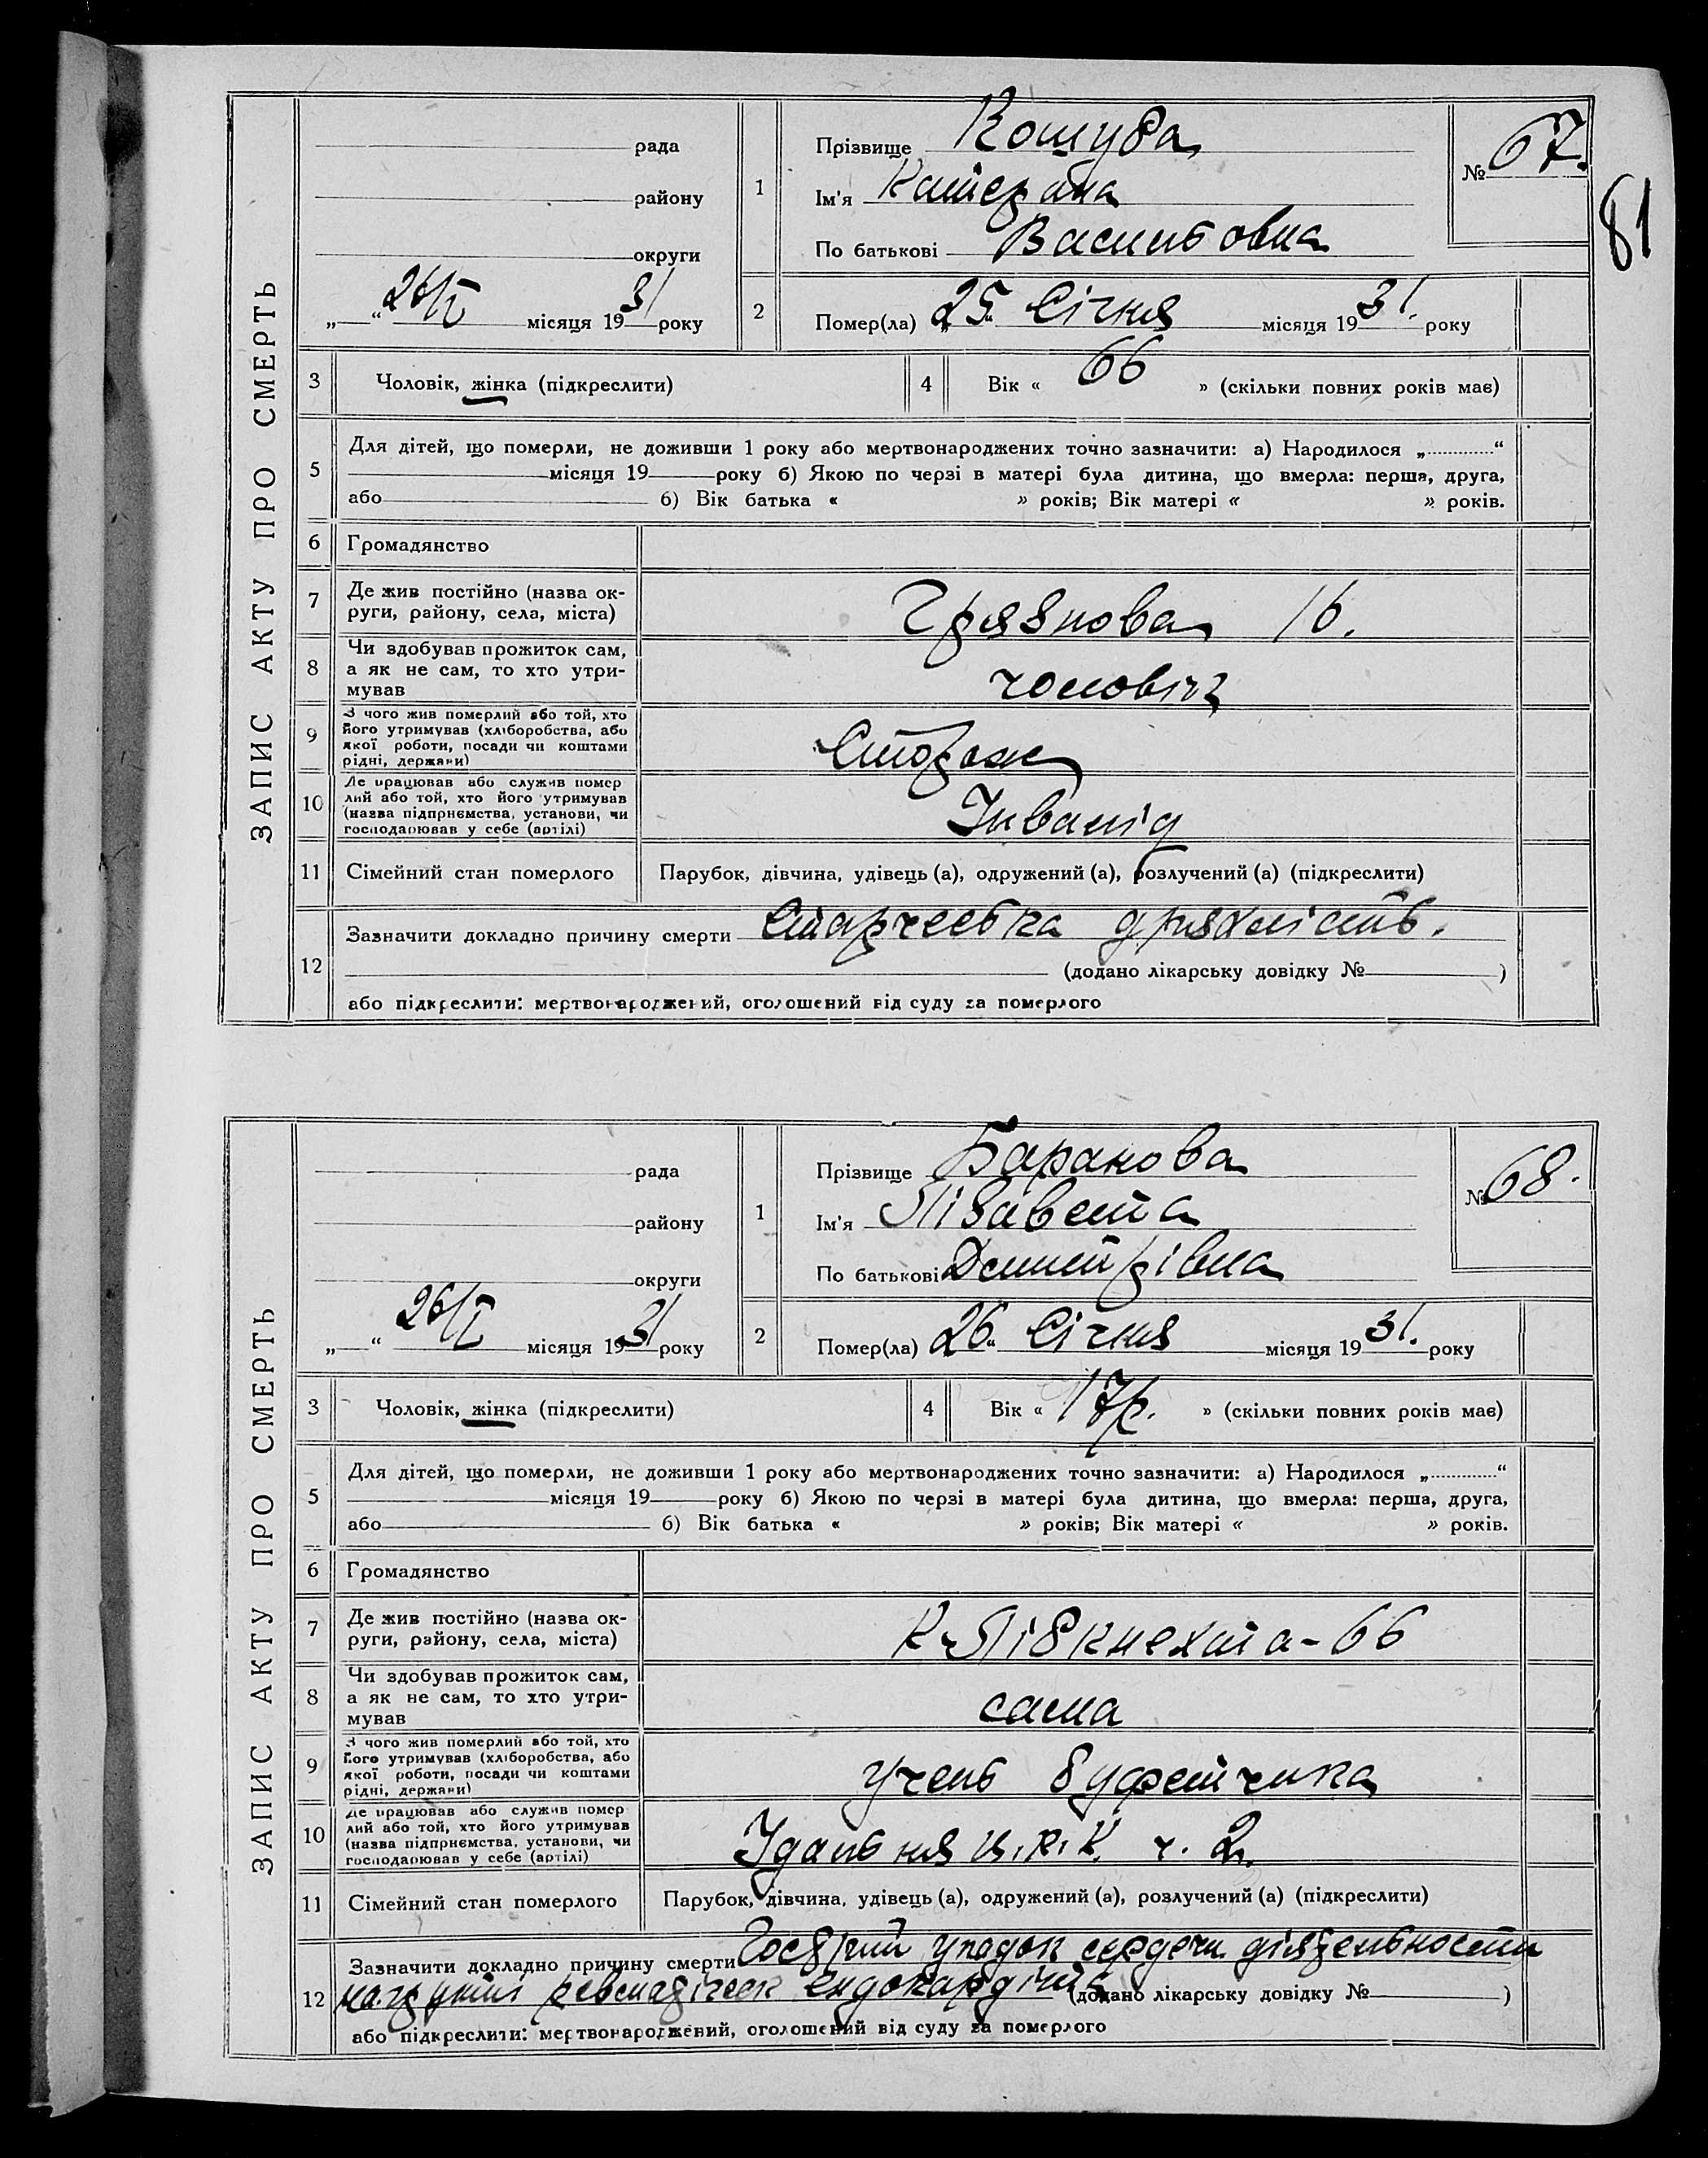 81
ЗАПИС АКТУ ПРО СМЕРТЬ
рада
району
округи
„ “ 26/I місяця 1931 року
1 Прізвище Кошуба
Ім'я Катерина
По батькові Васильовна
№ 67.
2 Помер(ла) „25“ Січня місяця 1931. року
3 Чоловік, жінка (підкреслити)
4 Вік « 66 » (скільки повних років має)
5 Для дітей, що померли, не доживши 1 року або мертвонароджених точно зазначити: а) Народилося „ “
місяця 19 року б) Якою по черзі в матері була дитина, що вмерла: перша, друга,
або б) Вік батька « » років; Вік матері « » років.
6 Громадянство
7 Де жив постійно (назва ок-
руги, району, села, міста)
Грязнова 16.
8 Чи здобував прожиток сам,
а як не сам, то хто утри-
мував
чоловік
9 З чого жив померлий або той, хто
його утримував (хліборобства, або
якої роботи, посади чи коштами
рідні, держави)
Сторож
10 Де працював або служив помер
лий або той, хто його утримував
(назва підприємства, установи, чи
господарював у себе (артілі)
Інвалід
11 Сімейний стан померлого Парубок, дівчина, удівець (а), одружений (а), розлучений (а) (підкреслити)
12 Зазначити докладно причину смерти Старческа дряхлість.
(додано лікарську довідку № )
або підкреслити: мертвонароджений, оголошений від суду за померлого
ЗАПИС АКТУ ПРО СМЕРТЬ
рада
району
округи
„ “ 26/I місяця 1931 року
1 Прізвище Баранова
Ім'я Лізавета
По батькові Демитрівна
№ 68.
2 Помер(ла) 26“ Січня місяця 1931. року
3 Чоловік, жінка (підкреслити)
4 Вік « 17р. » (скільки повних років має)
5 Для дітей, що померли, не доживши 1 року або мертвонароджених точно зазначити: а) Народилося „ “
місяця 19 року б) Якою по черзі в матері була дитина, що вмерла: перша, друга,
або б) Вік батька « » років; Вік матері « » років.
6 Громадянство
7 Де жив постійно (назва ок-
руги, району, села, міста)
К-Лібкнехта-66
8 Чи здобував прожиток сам,
а як не сам, то хто утри-
мував
сама
9 З чого жив померлий або той, хто
його утримував (хліборобства, або
якої роботи, посади чи коштами
рідні, держави)
учень буфетчика
10 Де працював або служив помер
лий або той, хто його утримував
(назва підприємства, установи, чи
господарював у себе (артілі)
Їдальня Ц.Р.К. ч. 2.
11 Сімейний стан померлого Парубок, дівчина, удівець (а), одружений (а), розлучений (а) (підкреслити)
12 Зазначити докладно причину смерти упадок сердечн. діятельности
ендокардіть (додано лікарську довідку № )
або підкреслити: мертвонароджений, оголошений від суду за померлого